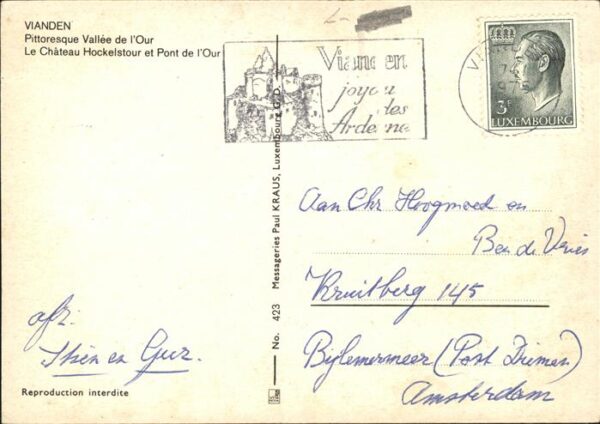 VIANDEN
Pittoresque Vallée de l'Our
Le Château Hockelstour et Pont de l'Our
Vianden
joyau
des
Ardenne
VI
3F
LUXEMBOURG
No. 423 Messageries Paul KRAUS, Luxembourg G.D.
Aan Chr Hoogmoed en
Ben de Vries
Kruitberg 145
Bijlemermeer (Post Diemen)
Amsterdam
afz.
Stien en Guz.
Reproduction interdite